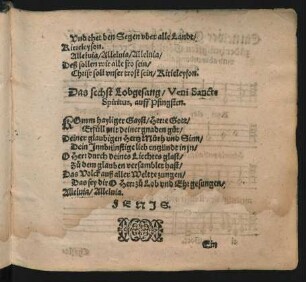 Vnd thet den Segen vber alle Landt/
Kirieleyson.
Alleluia/Alleluia/Alleluia/
Deß sollen wir alle fro sein/
Christ soll vnser trost sein/Kirieleyson.
Das sechst Lobgesang/ Veni Sancte
Spiritus, auff Pfingsten.
KOmm hayliger Gayst/ Herre Gott/
Erfüll mit deiner gnaden güt/
Deiner glaubigen Hertz Müth und Sinn/
Dein Innbrünstige lieb entzünd in jn/
O Herr durch deines Liechtes glast/
Zů dem glauben versamblet hast/
Das Volck auß aller Welt zungen/
Das sey dir O Herr zů Lob vnd Ehr gesungen/
Alleluia/Alleluia.
FINIS.
Ein